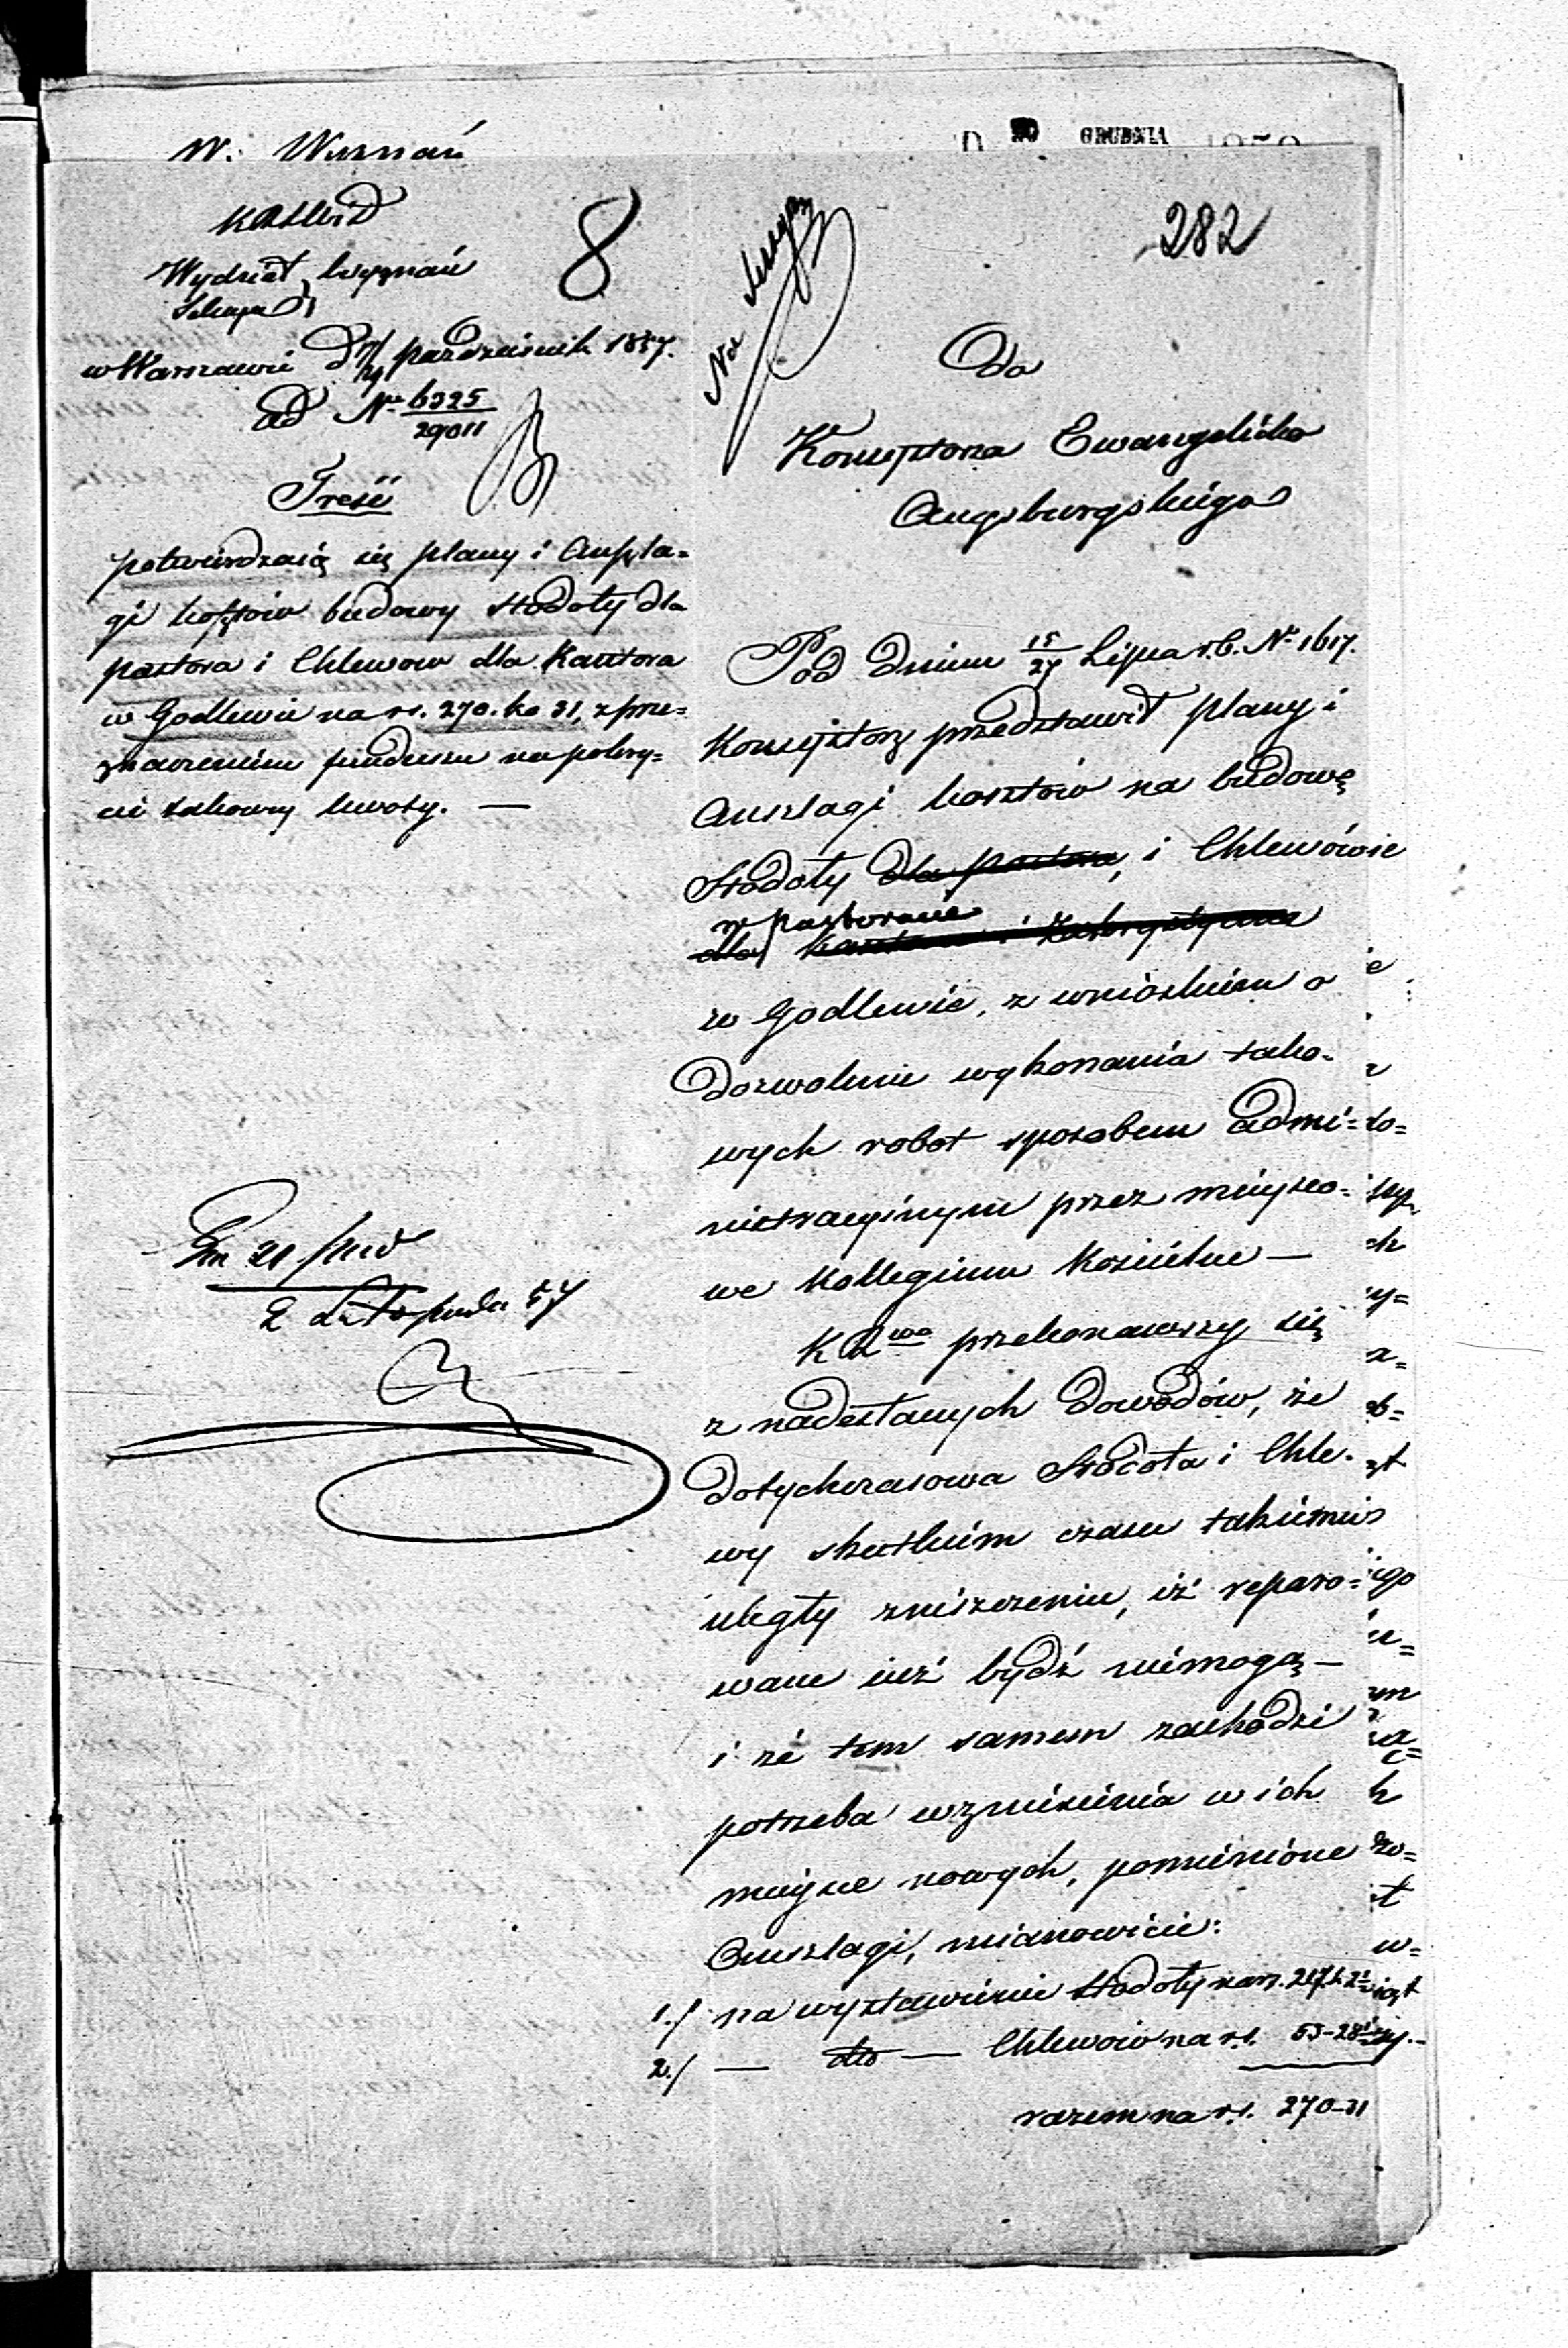 W. Wyznań
GRUDNIA
282
8
Wydział Wyznań
Sekcya
w Warszawie d październik 1857.
ad Nr 6325
29011
Treść
potwierdzaią się plany i Anszla=
gi kosztów budowy stodoły dla
pastora i Chlewow dla Kantora
w Godlewie na rs. 270. ko 31, z prze=
znaczeniem funduszu na pokry=
cie takowey kwoty. —
2 Listopada 57
Do
Konsystorza Ewangelicko
Augsburgskiego
Pod dniem 15/27 Lipca r.b. Nr 1617.
Konsystorz przedstawił plany i
Anszlagi kosztów na budowę
Stodoły dla pastora, i Chlewów
w pastoracie
dla Kantora i Zakrystyana
w Godlewie, z wnioskiem o
dozwolenie wykonania tako-
wych robot sposobem admi=
nistracyinym przez mieysco=
we Kollegium Kościelne —
K R wa przekonawszy się
z nadesłanych dowodów, że
dotychczasowa Stodoła i Chle-
wy skutkiem czasu takiemu
uległy zniszczeniu, iż reparo=
wane iuż bydź niemogą —
i że tem samem zachodzi
potrzeba wzniesienia w ich
mieysce nowych, pomienione
Anszlagi, mianowicie:
1./ na wystawienie stodoły na rs. 217 k. 2½
2./ — dto — Chlewow na rs. 53-28½
razem na rs. 270-31